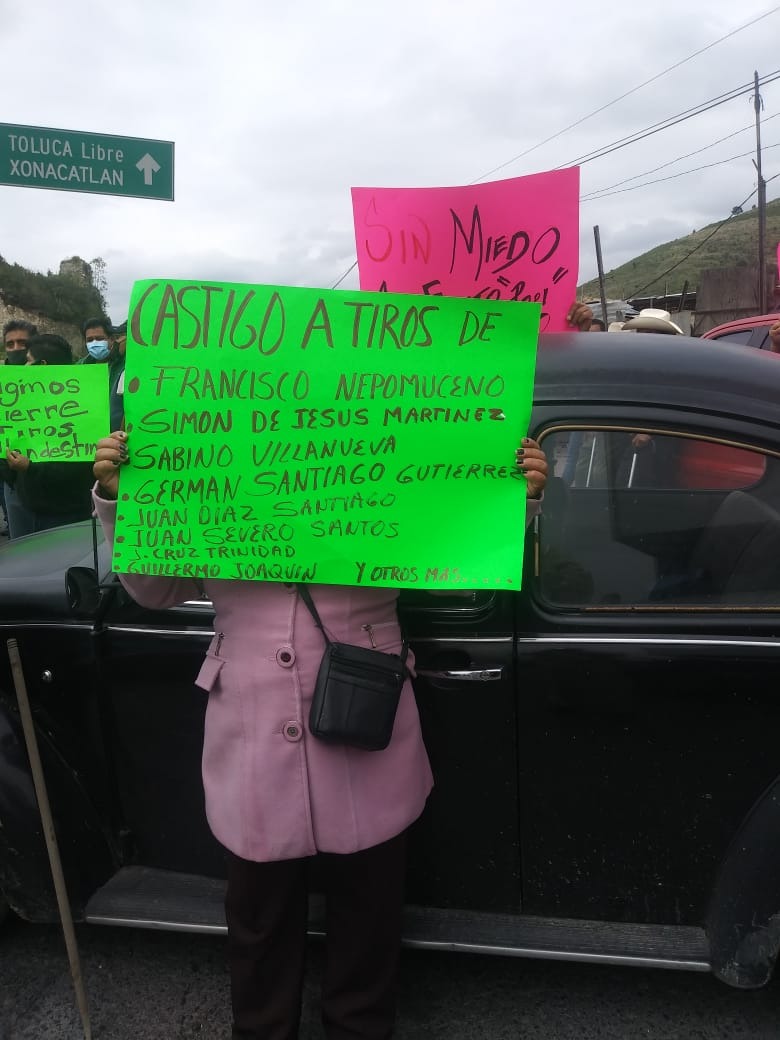 TOLUCA Libre
XONACATLAN
SIN MIEDO
CASTIGO A TIROS DE
• FRANCISCO NEPOMUCENO
• SIMON DE JESUS MARTINEZ
• SABINO VILLANUEVA
• GERMAN SANTIAGO GUTIERREZ
• JUAN DIAZ SANTIAGO
• JUAN SEVERO SANTOS
• J. CRUZ TRINIDAD
• GUILLERMO JOAQUIN Y OTROS MAS......
igimos
ierre
iros
landestin